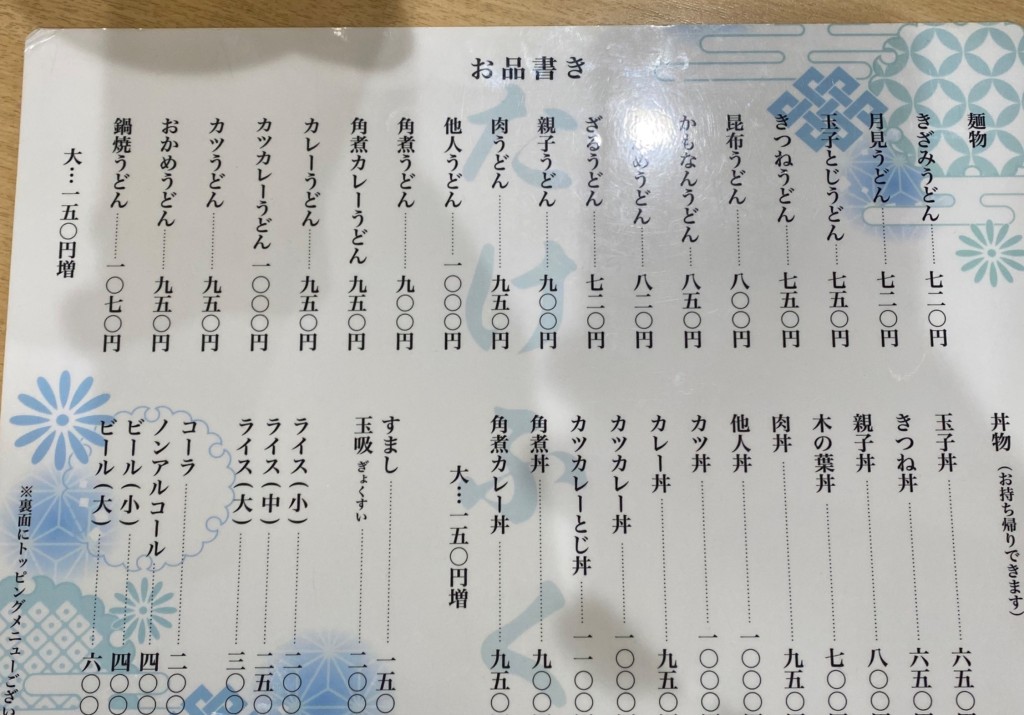 お品書き
麺物
きざみうどん 七二〇円
月見うどん 七二〇円
玉子とじうどん 七五〇円
きつねうどん 七五〇円
昆布うどん 八〇〇円
かもなんうどん 八五〇円
めうどん 八二〇円
ざるうどん 七二〇円
親子うどん 九〇〇円
肉うどん 九五〇円
他人うどん 一〇〇〇円
角煮うどん 九〇〇円
角煮カレーうどん 九五〇円
カレーうどん 九五〇円
カツカレーうどん 一〇〇〇円
カツうどん 九五〇円
おかめうどん 九五〇円
鍋焼うどん 一〇七〇円
大…一五〇円増
丼物 (お持ち帰りできます)
玉子丼 六五〇
きつね丼 六五〇
親子丼 八〇〇
木の葉丼 七〇〇
肉丼 九五〇
他人丼 一〇〇〇
カツ丼 一〇〇〇
カレー丼 九五〇
カツカレー丼 一〇〇〇
カツカレーとじ丼 一一〇〇
角煮丼 九〇〇
角煮カレー丼 九五〇
大…一五〇円増
すまし 一五〇
玉吸 ぎょくすい 二〇〇
ライス(小) 二〇〇
ライス(中) 二五〇
ライス(大) 三〇〇
コーラ 二〇〇
ノンアルコール 四〇〇
ビール(小) 四〇〇
ビール(大) 六〇〇
※裏面にトッピングメニューござい
たけふく